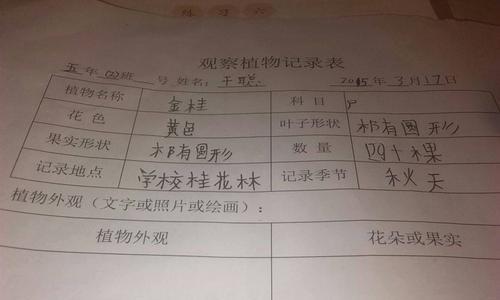 练习六
观察植物记录表
五年(2)班 号 姓名:聪 2015年3月17日
植物名称 金桂 科目
花色 黄色 叶子形状 椭圆形
果实形状 椭圆形 数量 四十棵
记录地点 学校桂花林 记录季节 秋天
植物外观（文字或照片或绘画）：
植物外观 花朵或果实